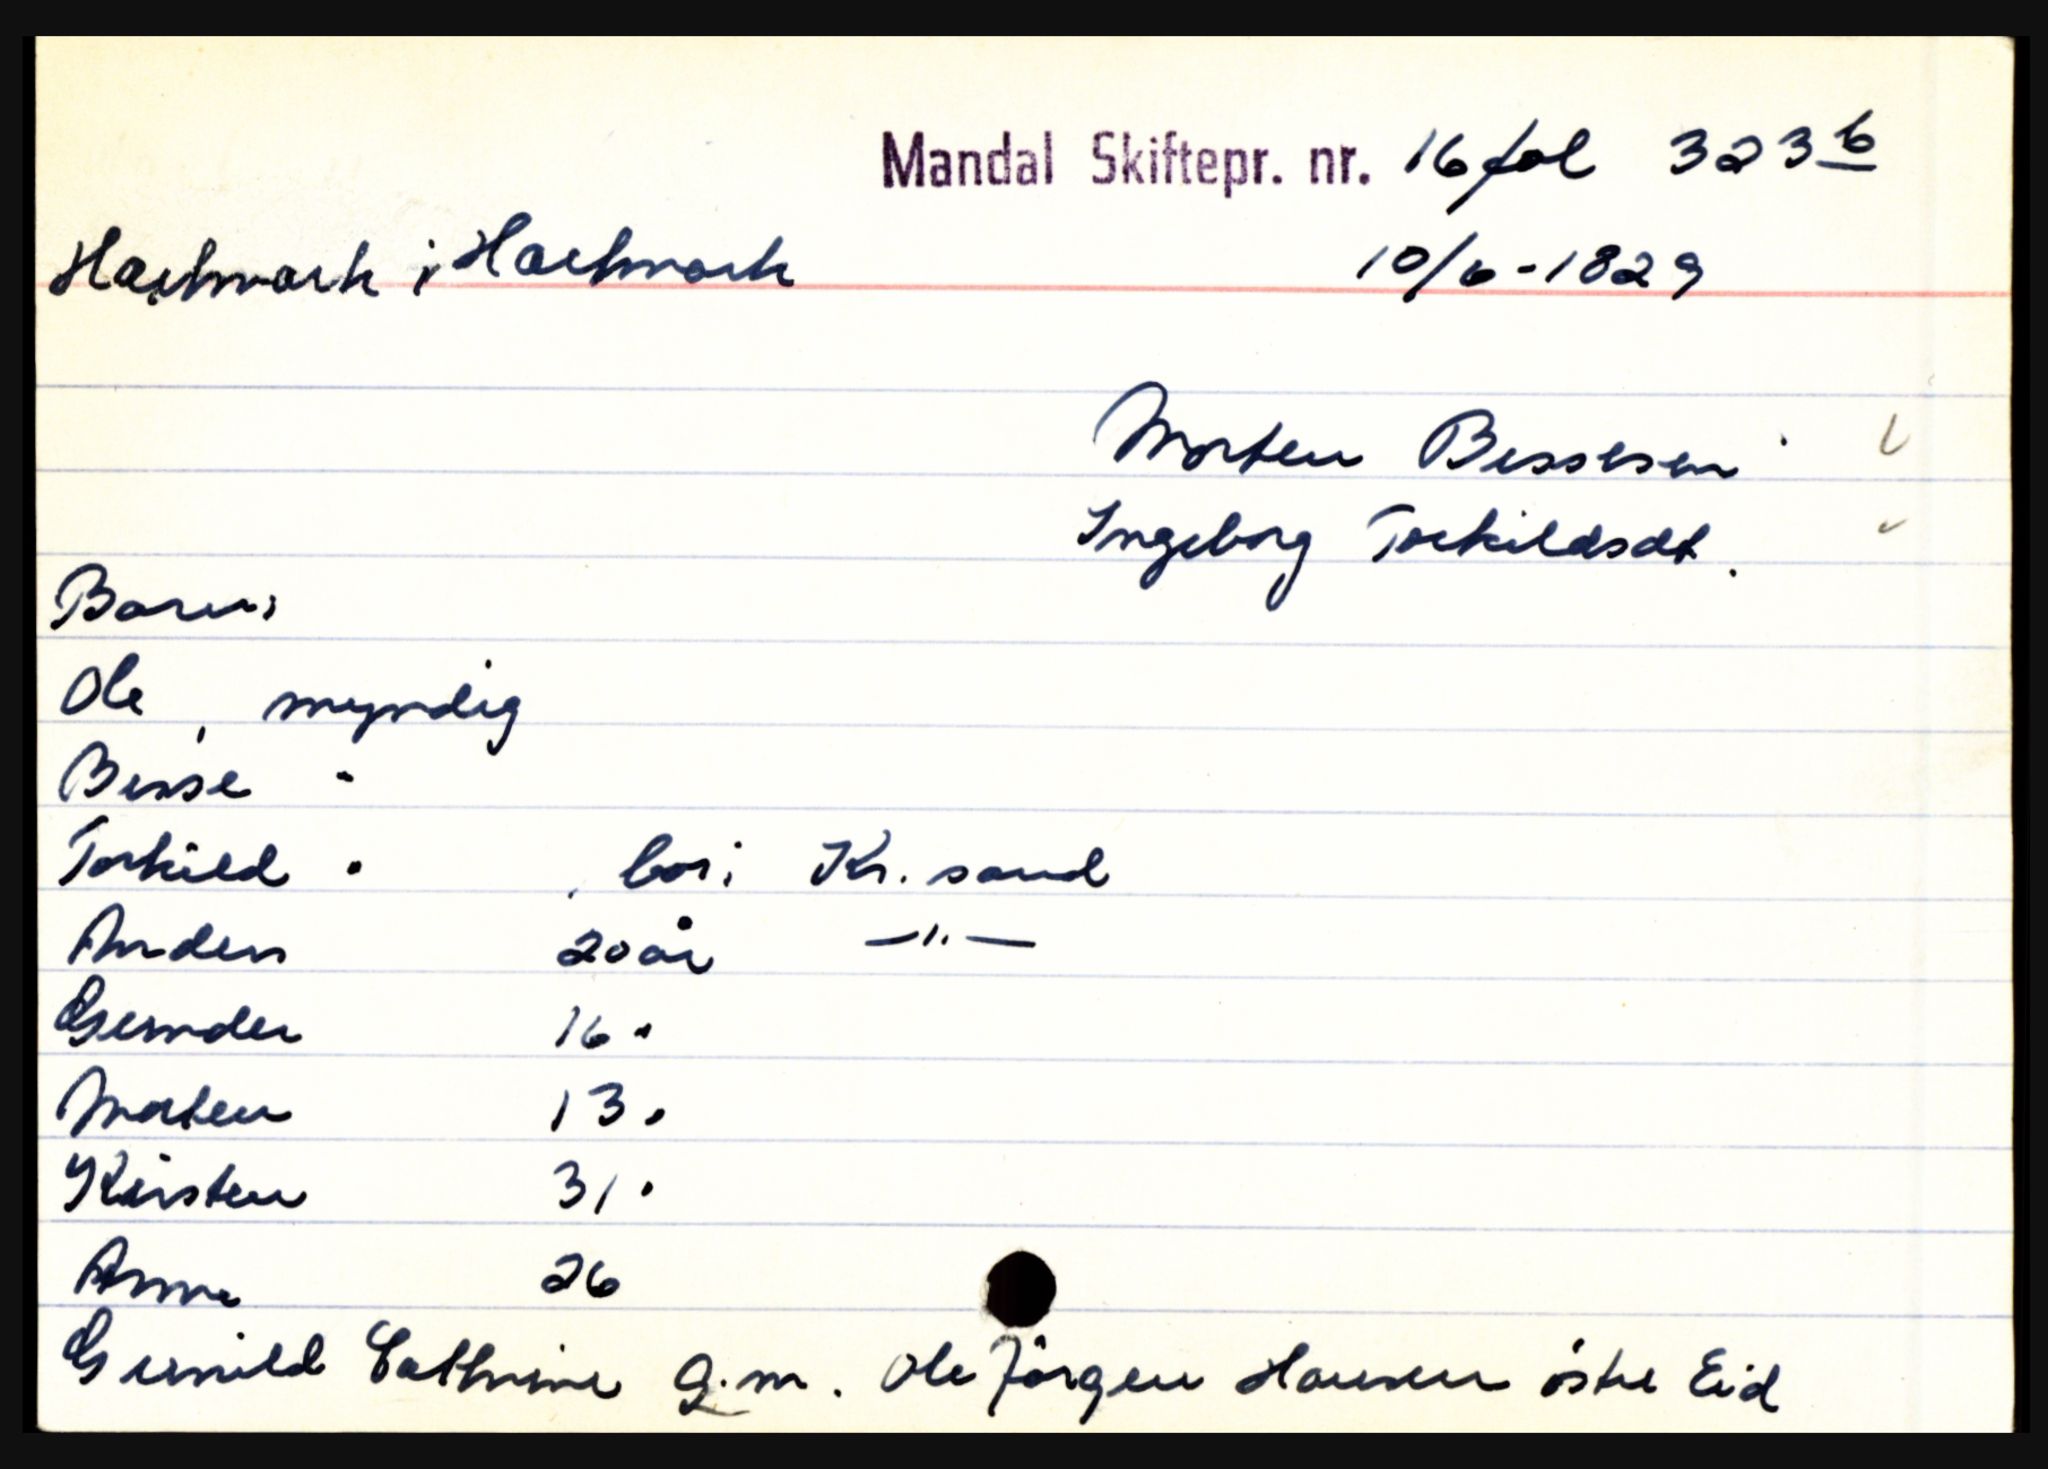 Mandal Skiftepr. nr. 16 fol 323 b
Hartmark i Hartmark 10/6-1829
Morten Bessesen
Ingeborg Torkildsdt.
Barn:
Ole, myndig
Besse "
Torkild " , bor i Kr. sand
Anders 20 år —"—
Gunder 16 "
Morten 13 "
Kirsten 31 "
Anne 26
Gunild Cathrine g.m. Ole Jörgen Hansen östre Eid